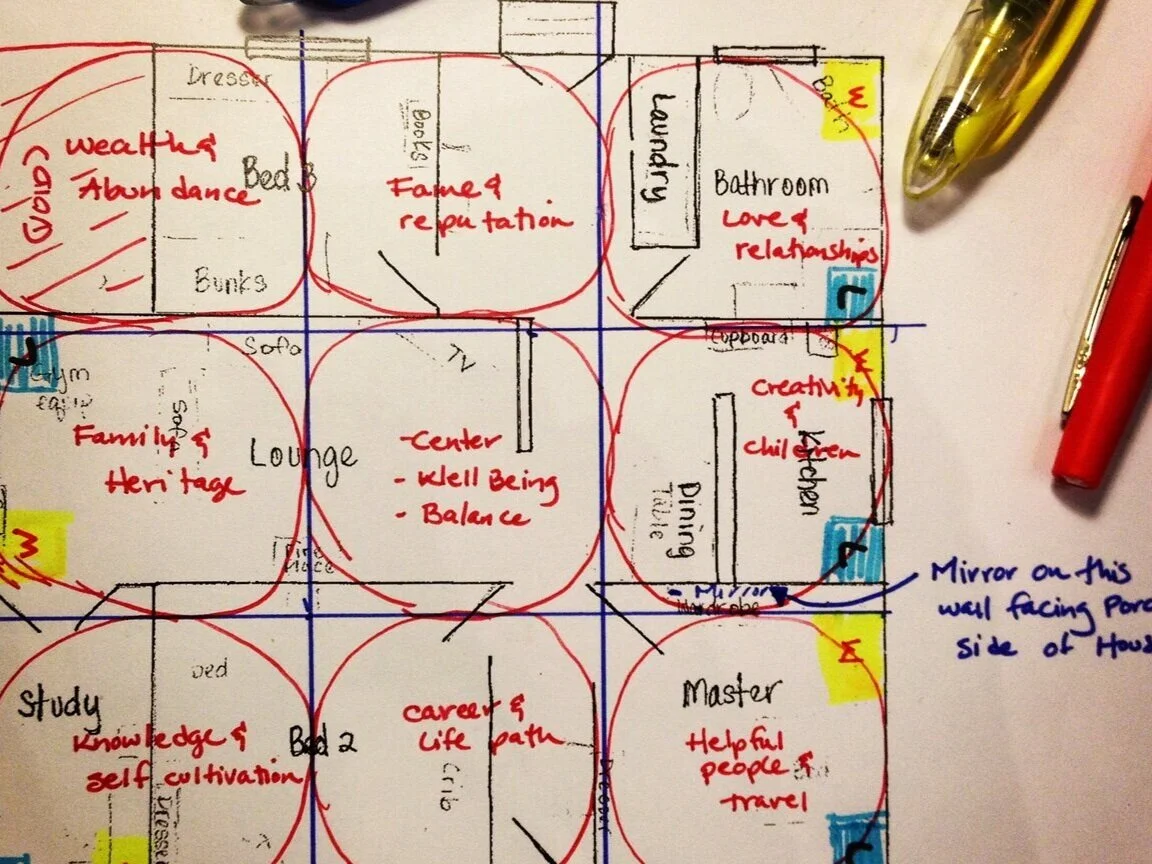 Dresser
Wealth &
Abundance
Bed 3
(Void)
Bunks
Books
Fame &
reputation
Laundry
Bath
W
Bathroom
Love &
relationships
L
L
Gym
equip
Sofa
Sofa
Family &
Heritage
Lounge
W
Fire
Place
TV
-Center
- Well Being
- Balance
Cupboard
W
Creativity
&
children
Kitchen
Dining
Table
L
- Mirror
Wardrobe
Mirror on this
wall facing
side of
Bed
Study
Knowledge &
self cultivation
Bed 2
Dresser
career &
Life path
Crib
Dresser
W
Master
Helpful
people &
travel
Bed
L